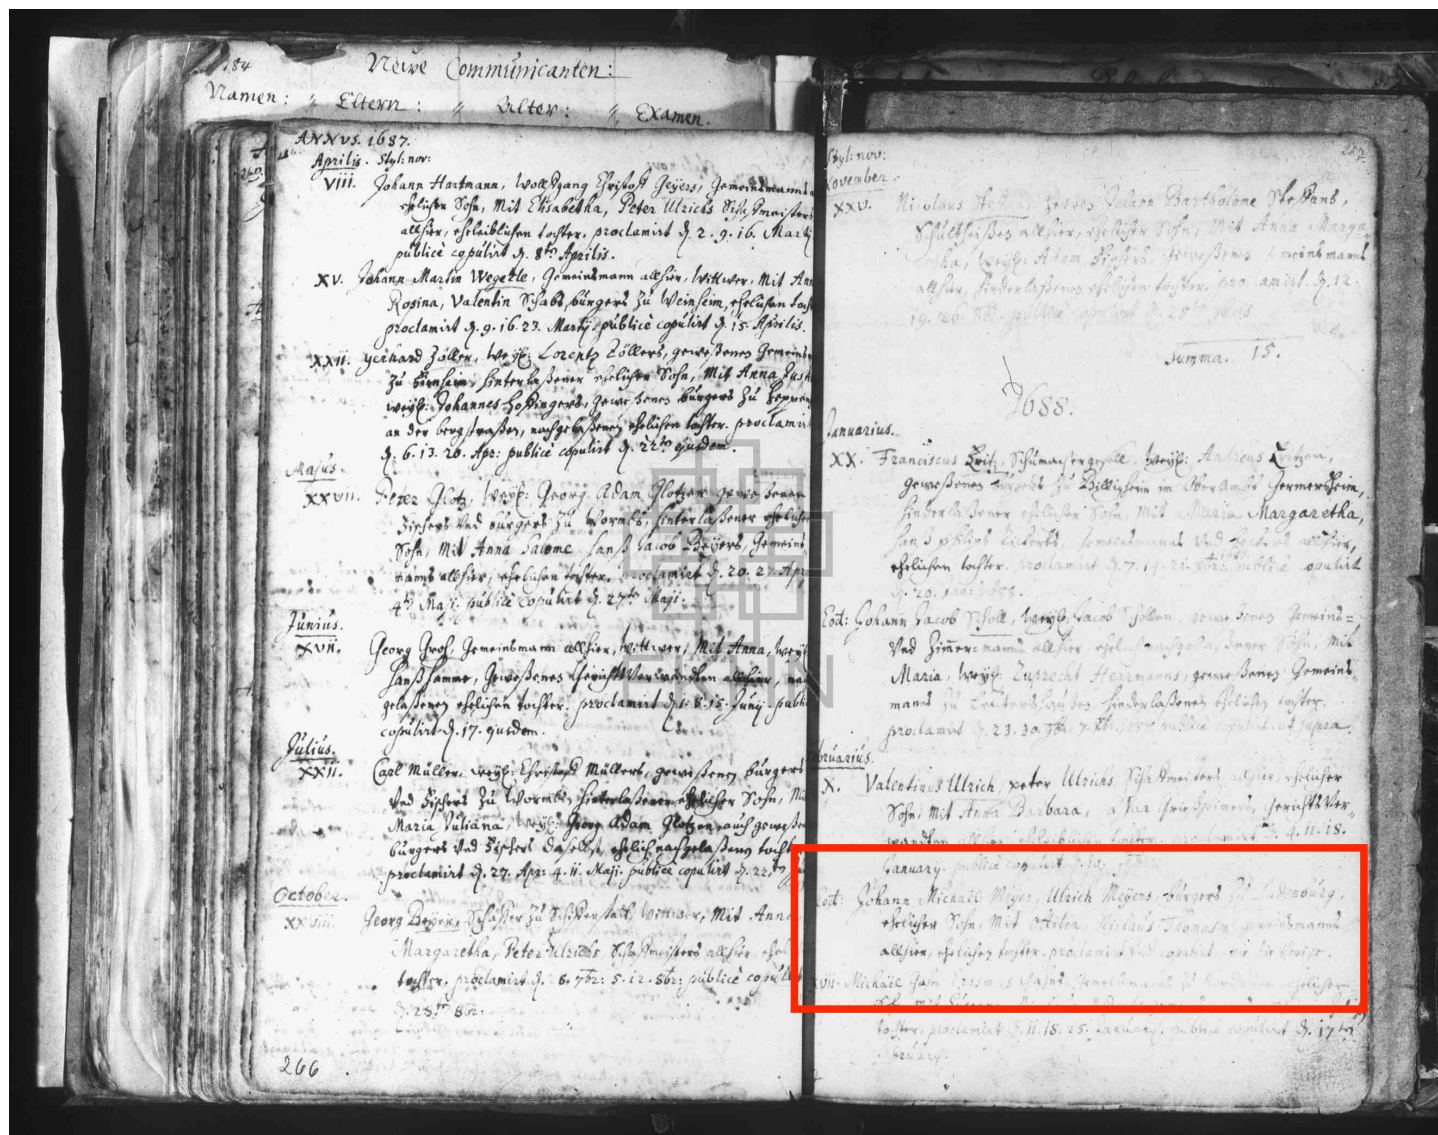 184
Neüe Communicanten:
Namen: " Eltern: " Alter: " Examen.
ANNVS. 1687.
Aprilis. Styl: nov:
VIII. Johann Hartmann, Wolffgang Christoff Geÿers, Gemeinsmanns
ehelicher Sohn, Mit Elisabetha, Peter Ulrichs Schaffmeisters
allhier, eheleiblichen tochter. proclamirt d. 2. 9. 16. Martÿ
publicè copulirt d. 8ten Aprilis.
XV. Johann Martin Wegerle, Gemeinsmann allhier, Wittwer, Mit Ann
Rosina, Valentin Schabs, bürgers zu Weinheim, ehelichen toch
proclamirt d. 9. 16. 23. Martÿ. publicè copulirt d. 15. Aprilis.
XXII. Gerhard Zöller, Weÿl: Lorentz Zöllers, geweßenen Gemeins
zu hinterlaßener ehelicher Sohn, Mit Anna
weÿl: Johannes geweßenen bürgers zu Heppen
an der bergstraßen, nachgelaßenen ehelichen tochter. proclamirt
d. 6. 13. 20. Apr: publicè copulirt d. 22ten ejusdem.
Majus.
XXVII. Peter Glotz, Weÿl: Georg Adam Glotzen geweßenen
Fischers Vnd bürgers zu Wormbs, hinterlaßener ehelicher
Sohn, Mit Anna Salome Hanß Jacob Beÿers, Gemeins
manns allhier, ehelichen tochter. proclamirt d. 20. 27. Apr
4ten Maji. publicè copulirt d. 27ten Maji.
Junius.
XVII. Georg Grof, Gemeinsmann allhier, Wittwer, Mit Anna, Weÿl
Hanß Geweßenen Gerichts Verwandten allhier, nach
gelaßenen ehelichen tochter. proclamirt d. 1. 8. 15. Junÿ publi
copulirt d. 17. ejusdem.
Julius.
XXII. Carl Müller, weÿl: Christoff Müllers, geweßenen bürgers
Vnd Fischers zu Wormbs, hinterlaßener ehelicher Sohn, Mi
Maria Juliana, Weÿl: Georg Adam Glotzen, auch geweße
bürgers Vnd Fischers daselbst, ehelich nachgelaßenen tochter
proclamirt d. 27. Apr: 4. 11. Maji. publicè copulirt d. 22ten
October.
XXVIII. Georg Beÿer, Schäffer zu Schifferstatt, Wittwer, Mit Anna
Margaretha, Peter Ulrichs Schaffmeisters allhier, ehel
tochter. proclamirt d. 7br: 5. 12. 8br: publicè copulirt
d. 28ten 8br.
266
267
Styl: nov:
November.
XXV. Nicolaus Herren Johann Bartholome Steffans,
Schultheißen allhier, ehelicher Sohn, Mit Anna Marga
retha, weÿl: Adam geweßenen Gemeinsmanns
allhier, hinderlaßenen ehelichen tochter. proclamirt. d. 12.
19. 26. 8br. publicè copulirt d. 25ten
Summa. 15.
1688.
Januarius.
XX. Franciscus Fritz, Schumachergesell, Weÿl: Andreas Fritzen,
geweßenen zu Billigheim im OberAmbt Germersheim,
hinderlaßener ehelicher Sohn, Mit Maria Margaretha,
Hanß Philips Gemeinsmanns Vnd allhier,
ehelichen tochter. proclamirt d. 7. 14. 21. publicè copulirt
d. 20. Jan: 1688.
Eod: Johann Jacob Scholl, Weÿl: Jacob Schollen, geweßenen Gemeins=
Vnd Zimmer=manns allhier ehelich nachgelaßener Sohn, Mit
Maria, Weÿl: Ruprecht Herrmanns, geweßenen Gemeins
manns zu hinderlaßenen ehelichen tochter.
proclamirt d. 23. 30. 9br. 7. publicè copulirt ut supra.
Februarius.
X. Valentinus Ulrich, peter Ulrichs, Schaffmeisters allhier, ehelicher
Sohn, Mit Anna Barbara, Gerichts Ver
wandten allhier, eheleiblichen tochter. proclamirt d. 4. 11. 18.
Januarÿ. publicè copulirt d. 10.
Eod: Johann Michael Meÿer, Ulrich Meÿers bürgers zu Ladenburg,
ehelicher Sohn, Mit Otilia, Niclaus Gemeinsmanns
allhier, ehelichen tochter. proclamirt Vnd copulirt, wie die Vorige.
XVII. Michael Hahn, Erasmus Hahns, Gemeinsmanns zu ehelicher
Sohn, mit
tochter, proclamirt d. 11. 18. 25. Januarÿ. publicè copulirt d. 17ten
Februarÿ.
EKHN